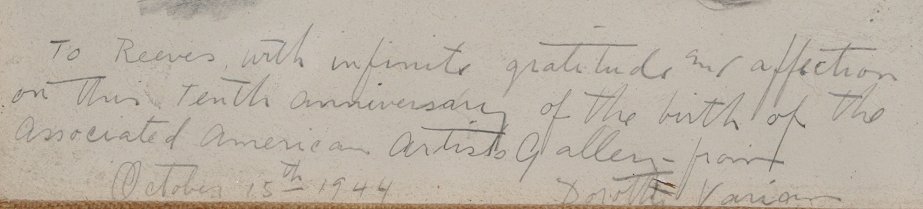 To Reeves, with infinite gratitude and affection
on this tenth anniversary of the birth of the
Associated American Artists Gallery - from
October 15th 1944 Dorothy Varian